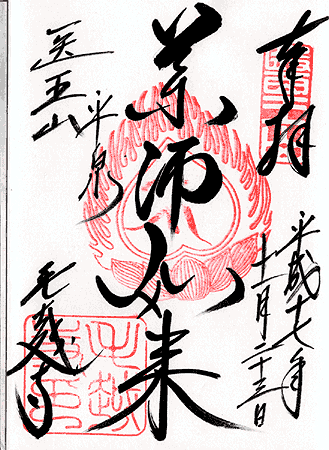 奉拝
平成十七年
十一月二十三日
薬師如来
医王山
平泉
毛越寺